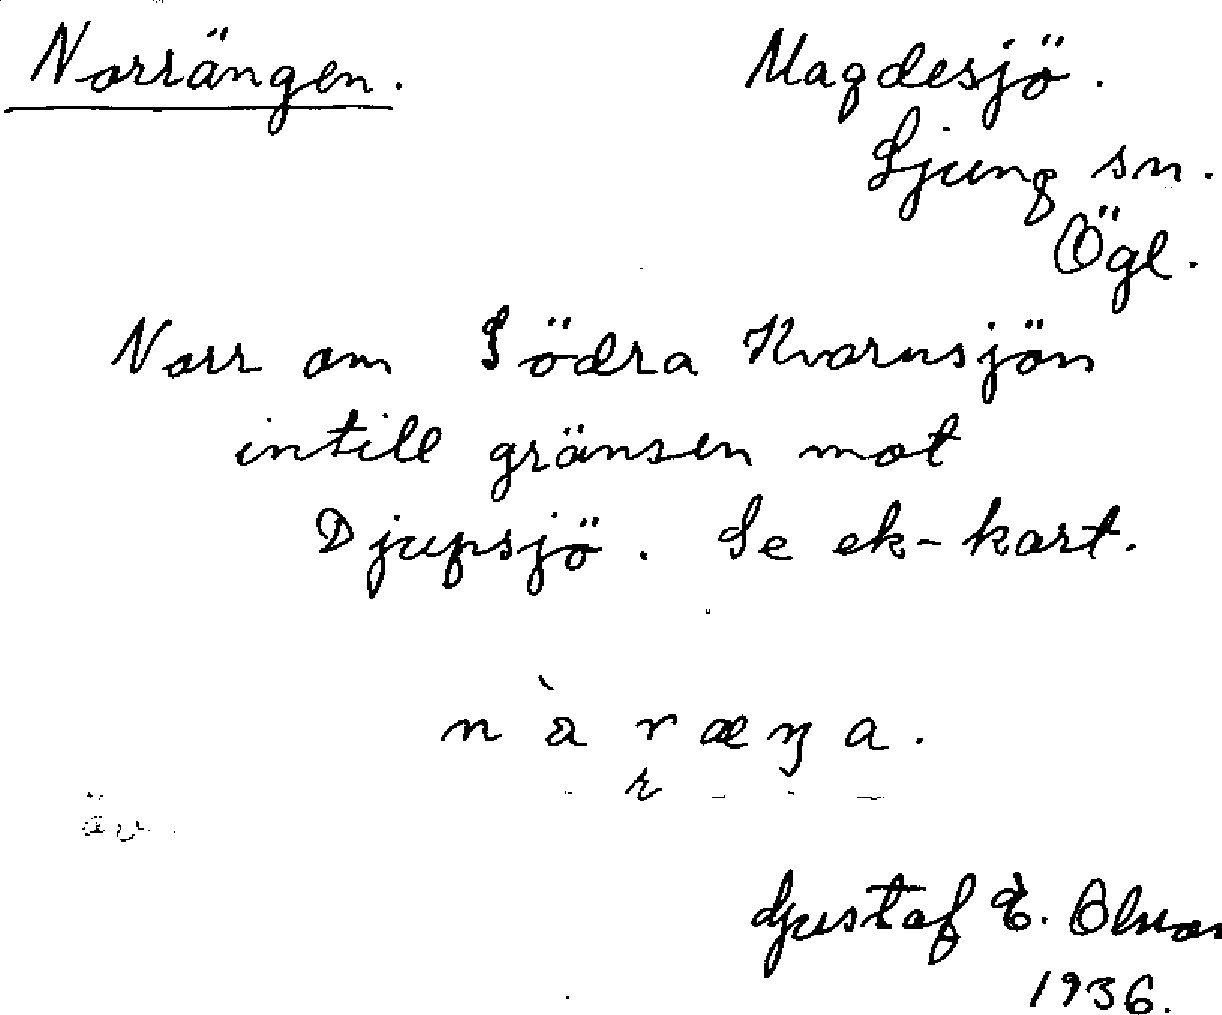 Norrängen. Magdesjö.
Ljung sn.
Ögl.
Norr om Södra Kvarnsjön
intill gränsen mot
Djupsjö. Se ek-kart.
nàræŋa.
r
äv.
Gustaf E.
1936.